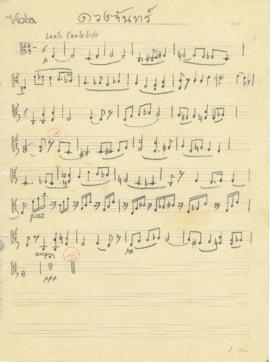 Viola ดวงจันทร์
Lento Cantabile
pizz
arco
pp
ppp